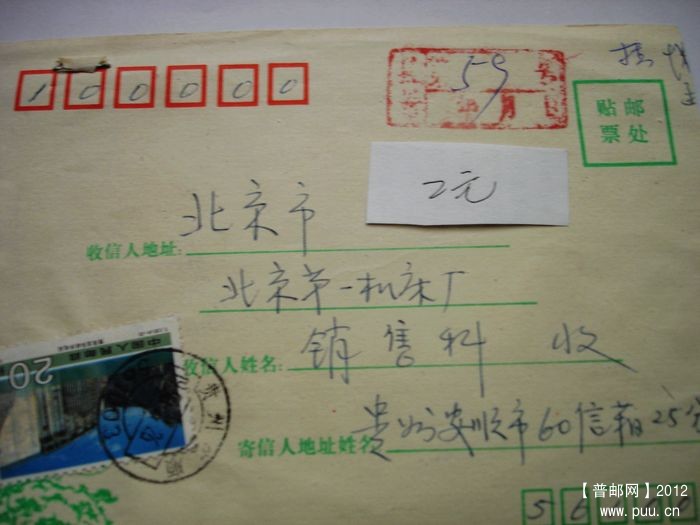 100000
59
月
挂
贴邮
票处
2元
北京市
收信人地址:
北京第一机床厂
收信人姓名: 销售科 收
20
中国人民邮政
贵州
寄信人地址姓名 贵州安顺市60信箱25分
【普邮网】2012
www.puu.cn